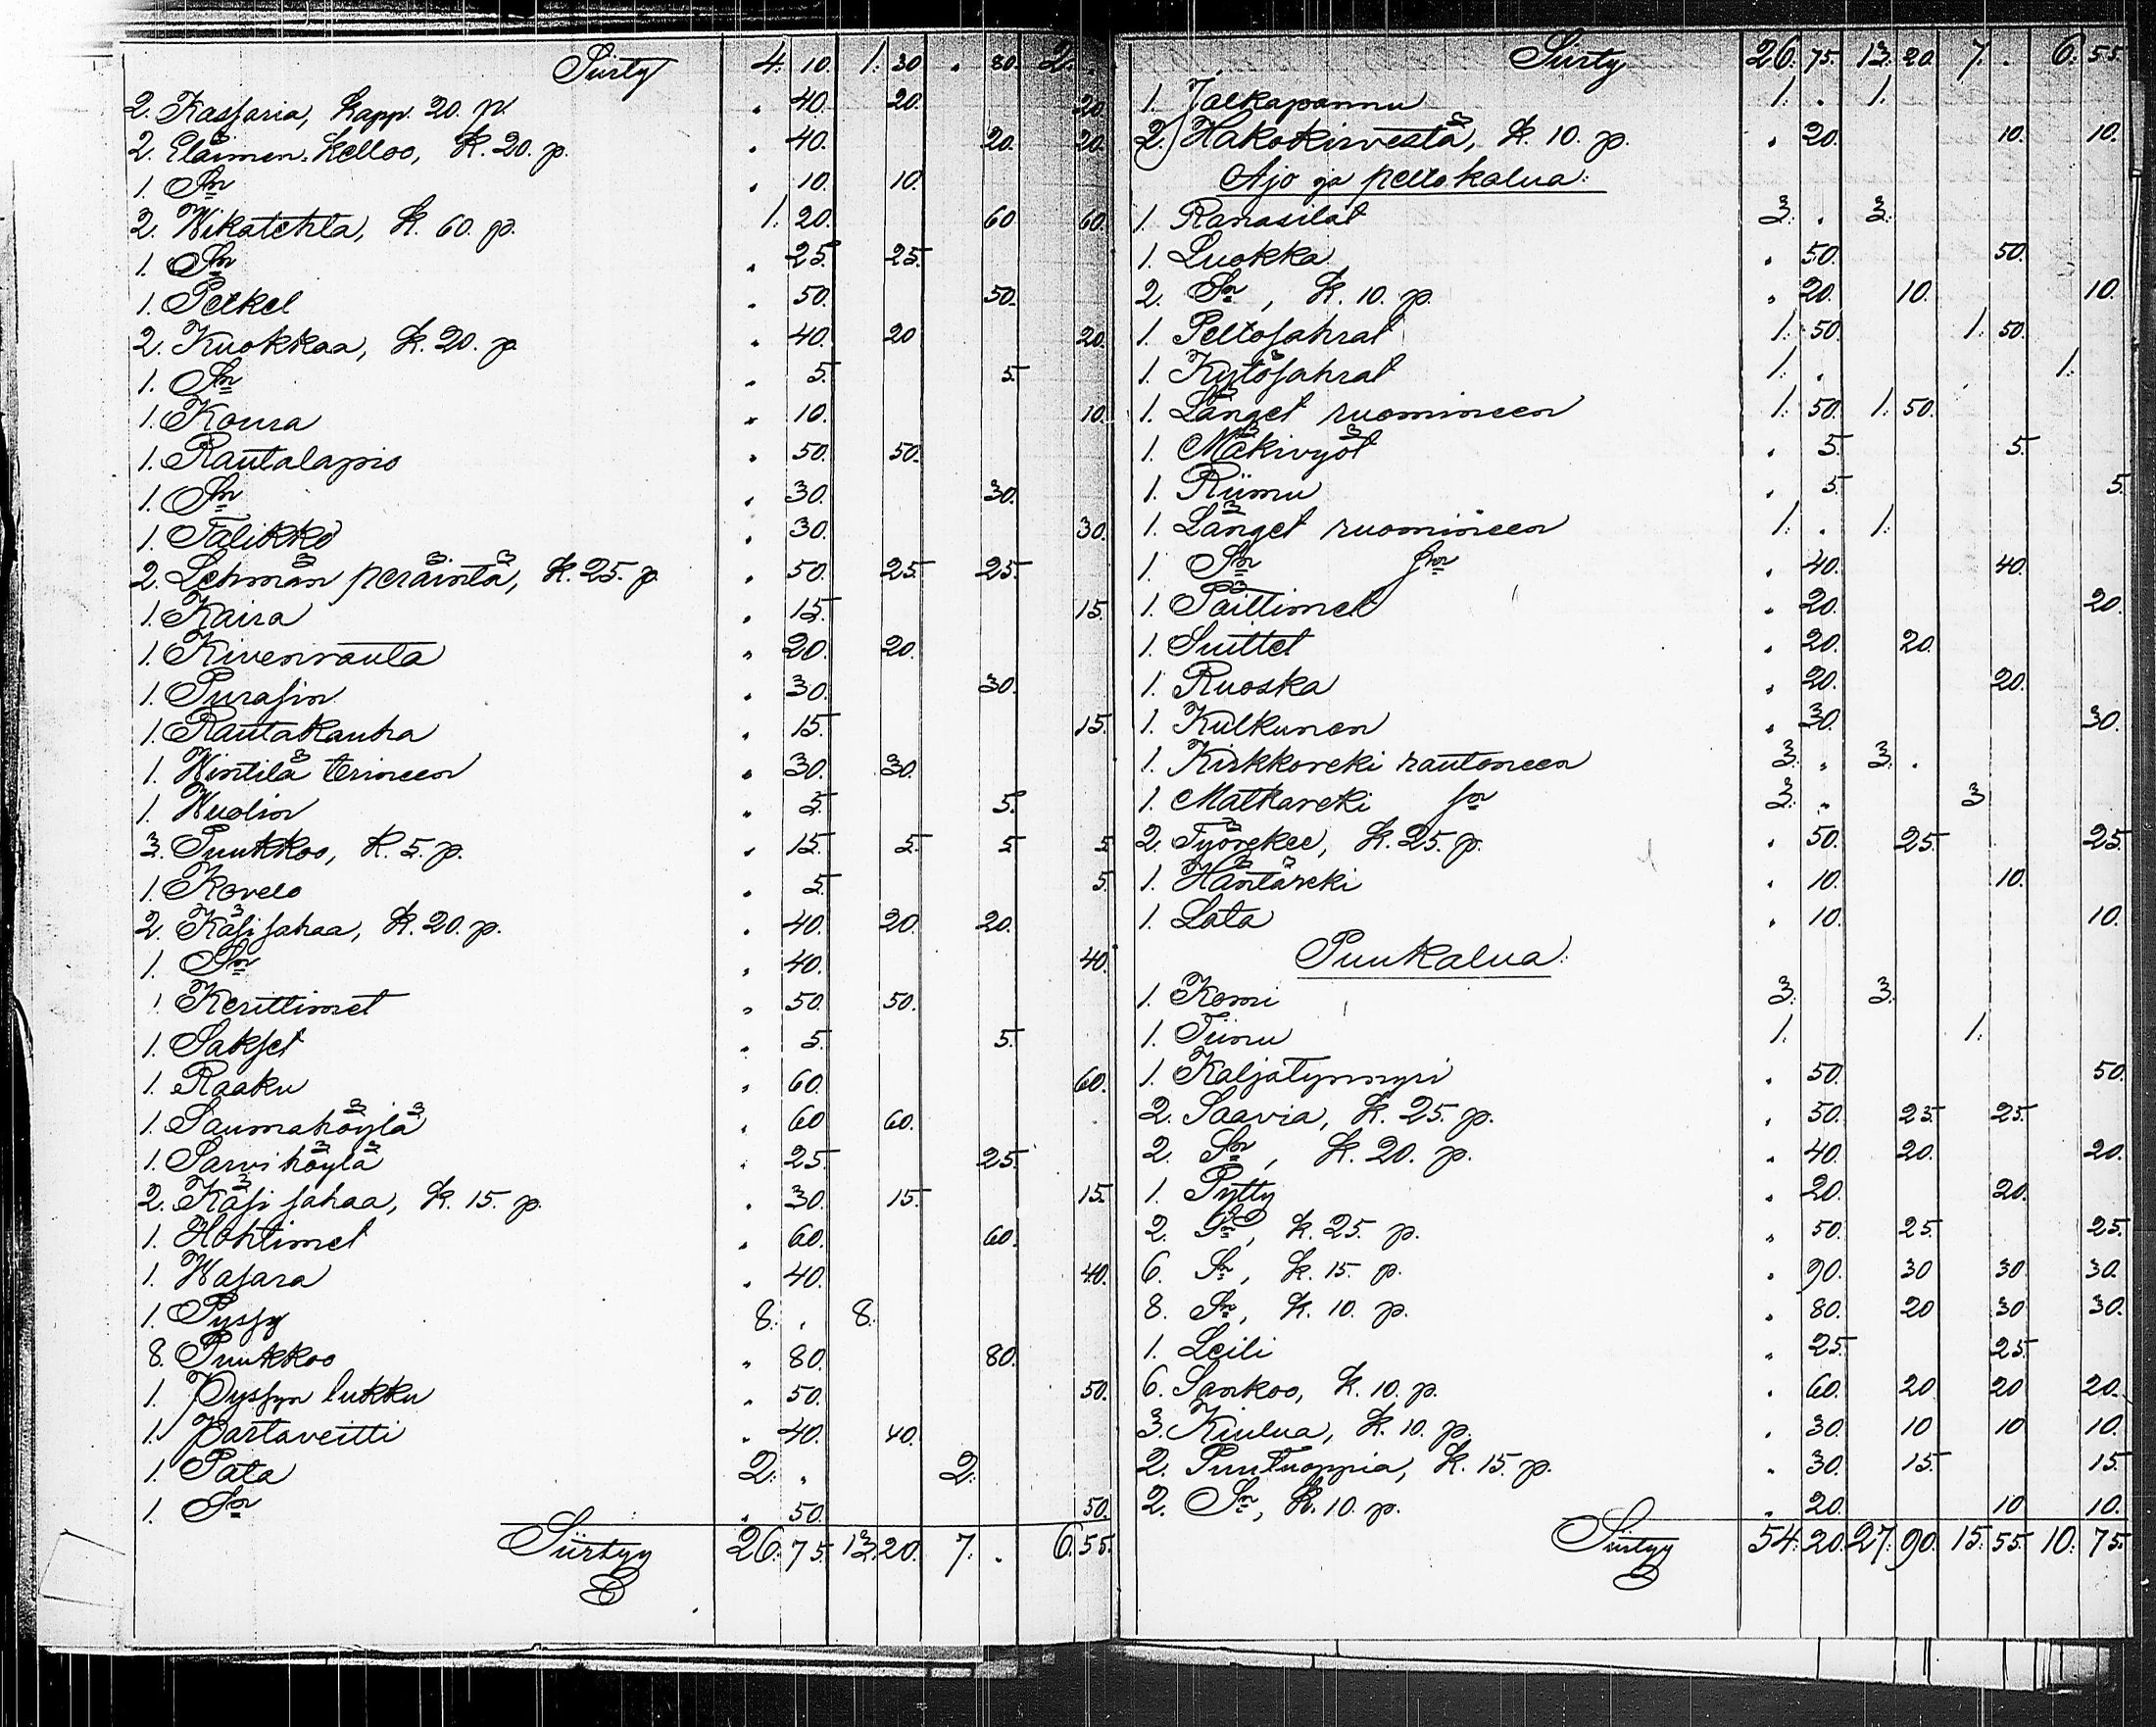 Siirty 4: 10. 1: 30 . 80. 2: .
2. Kassaria, kapp. 20. p. . 40. 20. 20.
2. Eläimen kelloo, k. 20. p. . 40. 20. 20.
1. Sn . 10. 10.
2. Wikatehta, k. 60. p. 1. 20. 60 60.
1. Sn . 25. 25.
1. Petkel . 50. 50.
2. Kuokkaa, k. 20. p. . 40. 20 20.
1. Sn . 5. 5.
1. Koura . 10. 10.
1. Rautalapio . 50. 50.
1. Sn . 30. 30.
1. Talikko . 30. 30.
2. Lehmän peräintä, k. 25. p. . 50. 25. 25.
1. Kaira . 15. 15.
1. Kivenrauta . 20. 20.
1. Purasin . 30. 30.
1. Rautakauha . 15. 15.
1. Wintilä terineen . 30. 30.
1. Wuolin . 5. 5.
3. Puukkoo, k. 5. p. . 15. 5. 5 5.
1. Kovelo . 5. 5.
2. Käsisahaa, k. 20. p. . 40. 20. 20.
1. Sn . 40. 40.
1 Kerittimet . 50. 50.
1. Sakset . 5. 5.
1. Raaku . 60. 60.
1. Saumahöylä . 60 60.
1. Sarvihöylä . 25. 25.
2. Käsi sahaa, k. 15. p. . 30. 15. 15.
1. Hohtimet . 60. 60.
1. Wasara . 40. 40.
1. Pyssy 8: . 8:
8. Puukkoo . 80. 80.
1. Pyssyn lukku . 50. 50.
1. Partaveitti . 40. 40.
1. Pata 2: . 2:
1. Sn . 50. 50.
Siirtyy 26: 75. 13: 20. 7: . 6: 55.
Siirty 26: 75. 13: 20. 7: . 6: 55.
1. Jalkapannu 1: . 1:
2. Hakokirvestä, k. 10. p. . 20. 10. 10.
Ajo ja peltokalua:
1. Ranasilat 3: . 3:
1. Luokka . 50. 50.
2. Sn, k. 10. p. . 20. 10. 10.
1. Peltosahrat 1: 50. 1: 50.
1. Kytösahrat 1: . 1:
1. Länget ruomineen 1: 50. 1: 50.
1. Mäkivyöt . 5. 5.
1. Riimu . 5. 5.
1. Länget ruomineen 1: . 1:
1. Sn sn . 40. 40.
1. Päittimet . 20. 20.
1. Suittet . 20. 20.
1. Ruoska . 20. 20.
1. Kulkunen . 30. 30.
1. Kirkkoreki rautoneen 3: . 3: .
1. Matkareki sn 3: . 3
2. Työrekee, k. 25. p. . 50. 25. 25.
1. Häntäreki . 10. 10.
1. Lata . 10. 10.
Puukalua:
1. Komi 3: 3:
1. Tiinu 1: 1:
1. Kaljatynnyri . 50. 50.
2. Saavia, k. 25. p. . 50. 25. 25.
2. Sn, k. 20. p. . 40. 20. 20.
1. Pytty . 20. 20.
2. Sn, k. 25. p. . 50. 25. 25.
6. Sn, k. 15. p. . 90. 30 30 30.
8. Sn, k. 10. p. . 80. 20 30 30.
1. Leili . 25. 25.
6. Sankoo, k. 10. p. . 60. 20 20 20.
3. Kiulua, k. 10. p. . 30. 10 10 10.
2. Puutuoppia, k. 15. p. . 30. 15. 15.
2. Sn, k. 10. p. . 20. 10 10.
Siirtyy 54: 20. 27: 90. 15: 55. 10: 75.